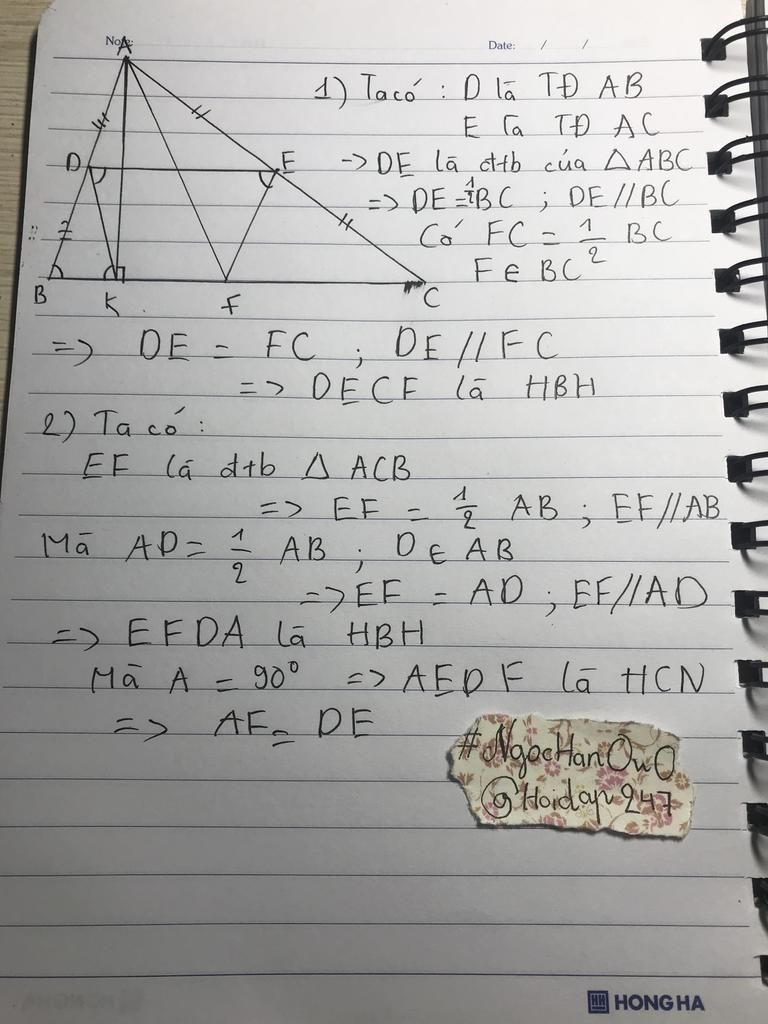 Note:
Date: / /
A
D
E
B
K
F
C
1) Ta có : D là TĐ AB
E là TĐ AC
-> DE là đtb của △ABC
=> DE = 1/2 BC ; DE // BC
Có FC = 1/2 BC
F ∈ BC
=> DE = FC ; DE // FC
=> DECF là HBH
2) Ta có :
EF là đtb △ ACB
=> EF = 1/2 AB ; EF // AB
Mà AD = 1/2 AB ; D ∈ AB
=> EF = AD ; EF // AD
=> EFDA là HBH
Mà A = 90° => AEDF là HCN
=> AF = DE
#NgocHanOwO
@Hoidap247
HONG HA